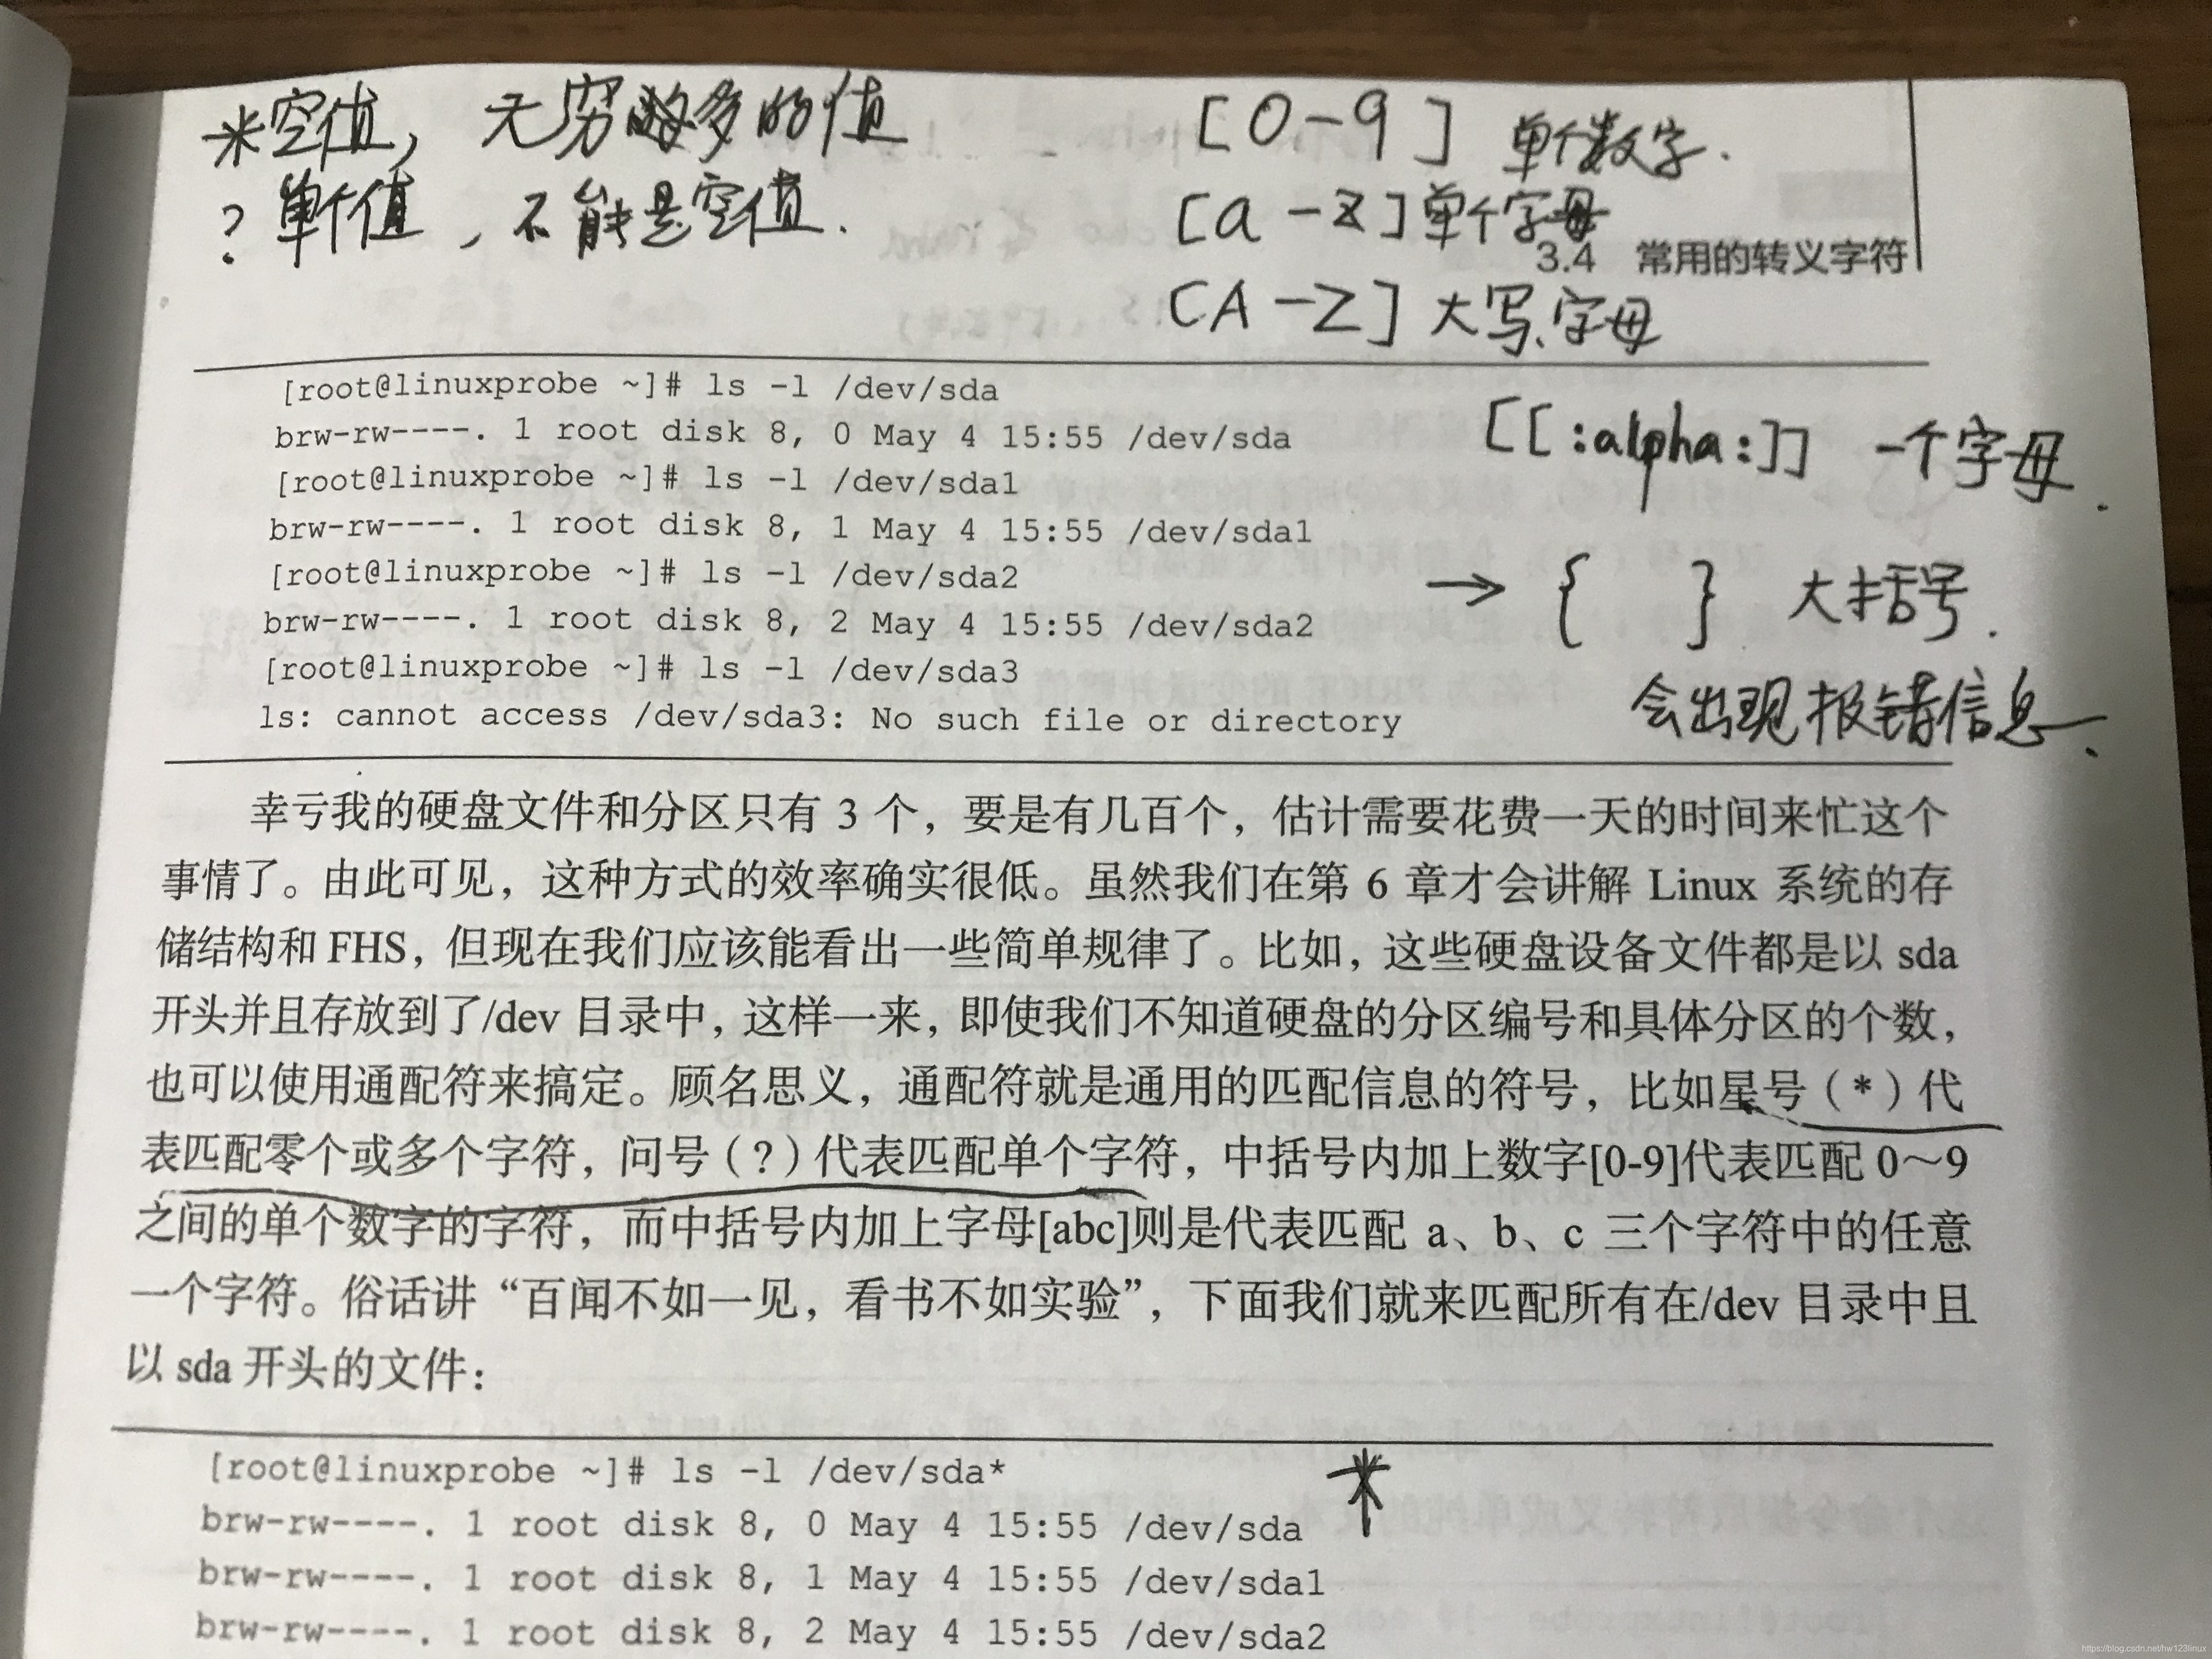 *空值，无穷多的值
？单个值，不能是空值.
[0-9] 单个数字.
[a-z] 单个字母
3.4 常用的转义字符
[A-Z] 大写字母
[root@linuxprobe ~]# ls -l /dev/sda
brw-rw----. 1 root disk 8, 0 May 4 15:55 /dev/sda
[root@linuxprobe ~]# ls -l /dev/sda1
brw-rw----. 1 root disk 8, 1 May 4 15:55 /dev/sda1
[root@linuxprobe ~]# ls -l /dev/sda2
brw-rw----. 1 root disk 8, 2 May 4 15:55 /dev/sda2
[root@linuxprobe ~]# ls -l /dev/sda3
ls: cannot access /dev/sda3: No such file or directory
[[:alpha:]] 一个字母.
→ { } 大括号.
会出现报错信息.
幸亏我的硬盘文件和分区只有 3 个，要是有几百个，估计需要花费一天的时间来忙这个
事情了。由此可见，这种方式的效率确实很低。虽然我们在第 6 章才会讲解 Linux 系统的存
储结构和 FHS，但现在我们应该能看出一些简单规律了。比如，这些硬盘设备文件都是以 sda
开头并且存放到了/dev 目录中，这样一来，即使我们不知道硬盘的分区编号和具体分区的个数，
也可以使用通配符来搞定。顾名思义，通配符就是通用的匹配信息的符号，比如星号（*）代
表匹配零个或多个字符，问号（?）代表匹配单个字符，中括号内加上数字[0-9]代表匹配 0～9
之间的单个数字的字符，而中括号内加上字母[abc]则是代表匹配 a、b、c 三个字符中的任意
一个字符。俗话讲“百闻不如一见，看书不如实验”，下面我们就来匹配所有在/dev 目录中且
以 sda 开头的文件：
[root@linuxprobe ~]# ls -l /dev/sda*
*
brw-rw----. 1 root disk 8, 0 May 4 15:55 /dev/sda
brw-rw----. 1 root disk 8, 1 May 4 15:55 /dev/sda1
brw-rw----. 1 root disk 8, 2 May 4 15:55 /dev/sda2
https://blog.csdn.net/hw123linux